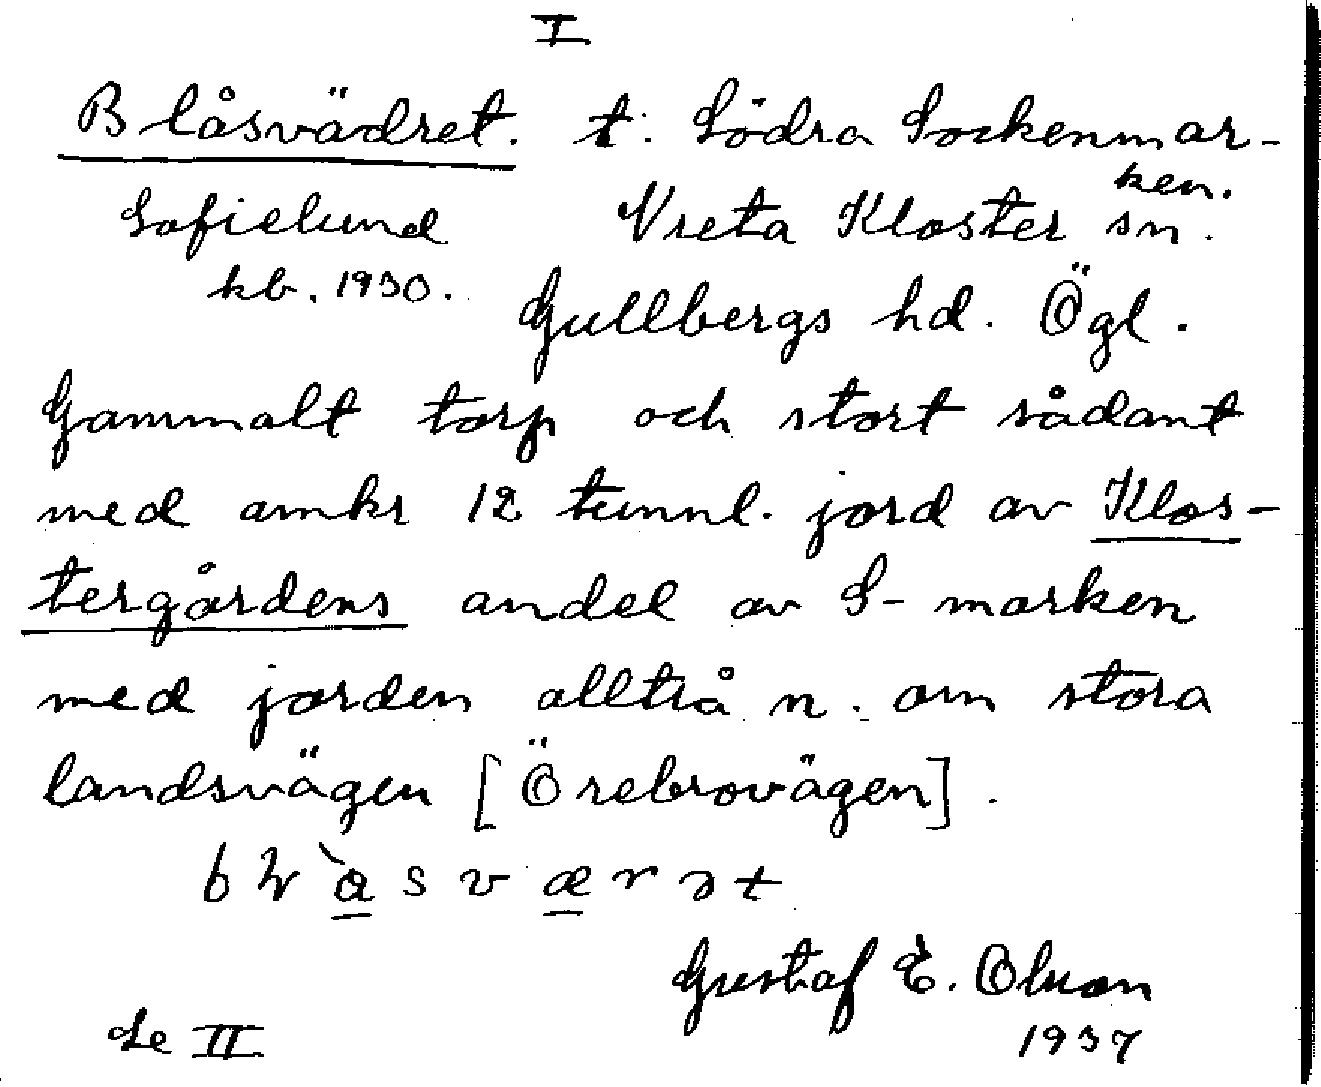 I
Blåsvädret. t. Södra Sockenmar-
ken.
Sofielund Vreta Kloster sn.
kb. 1930.
Gullbergs hd. Ögl.
Gammalt torp och stort sådant
med omkr 12 tunnl. jord av Klos-
tergårdens andel av S-marken
med jorden alltrå n. om stora
landsvägen [Örebrovägen].
Gustaf E. Olson
1937
Se II